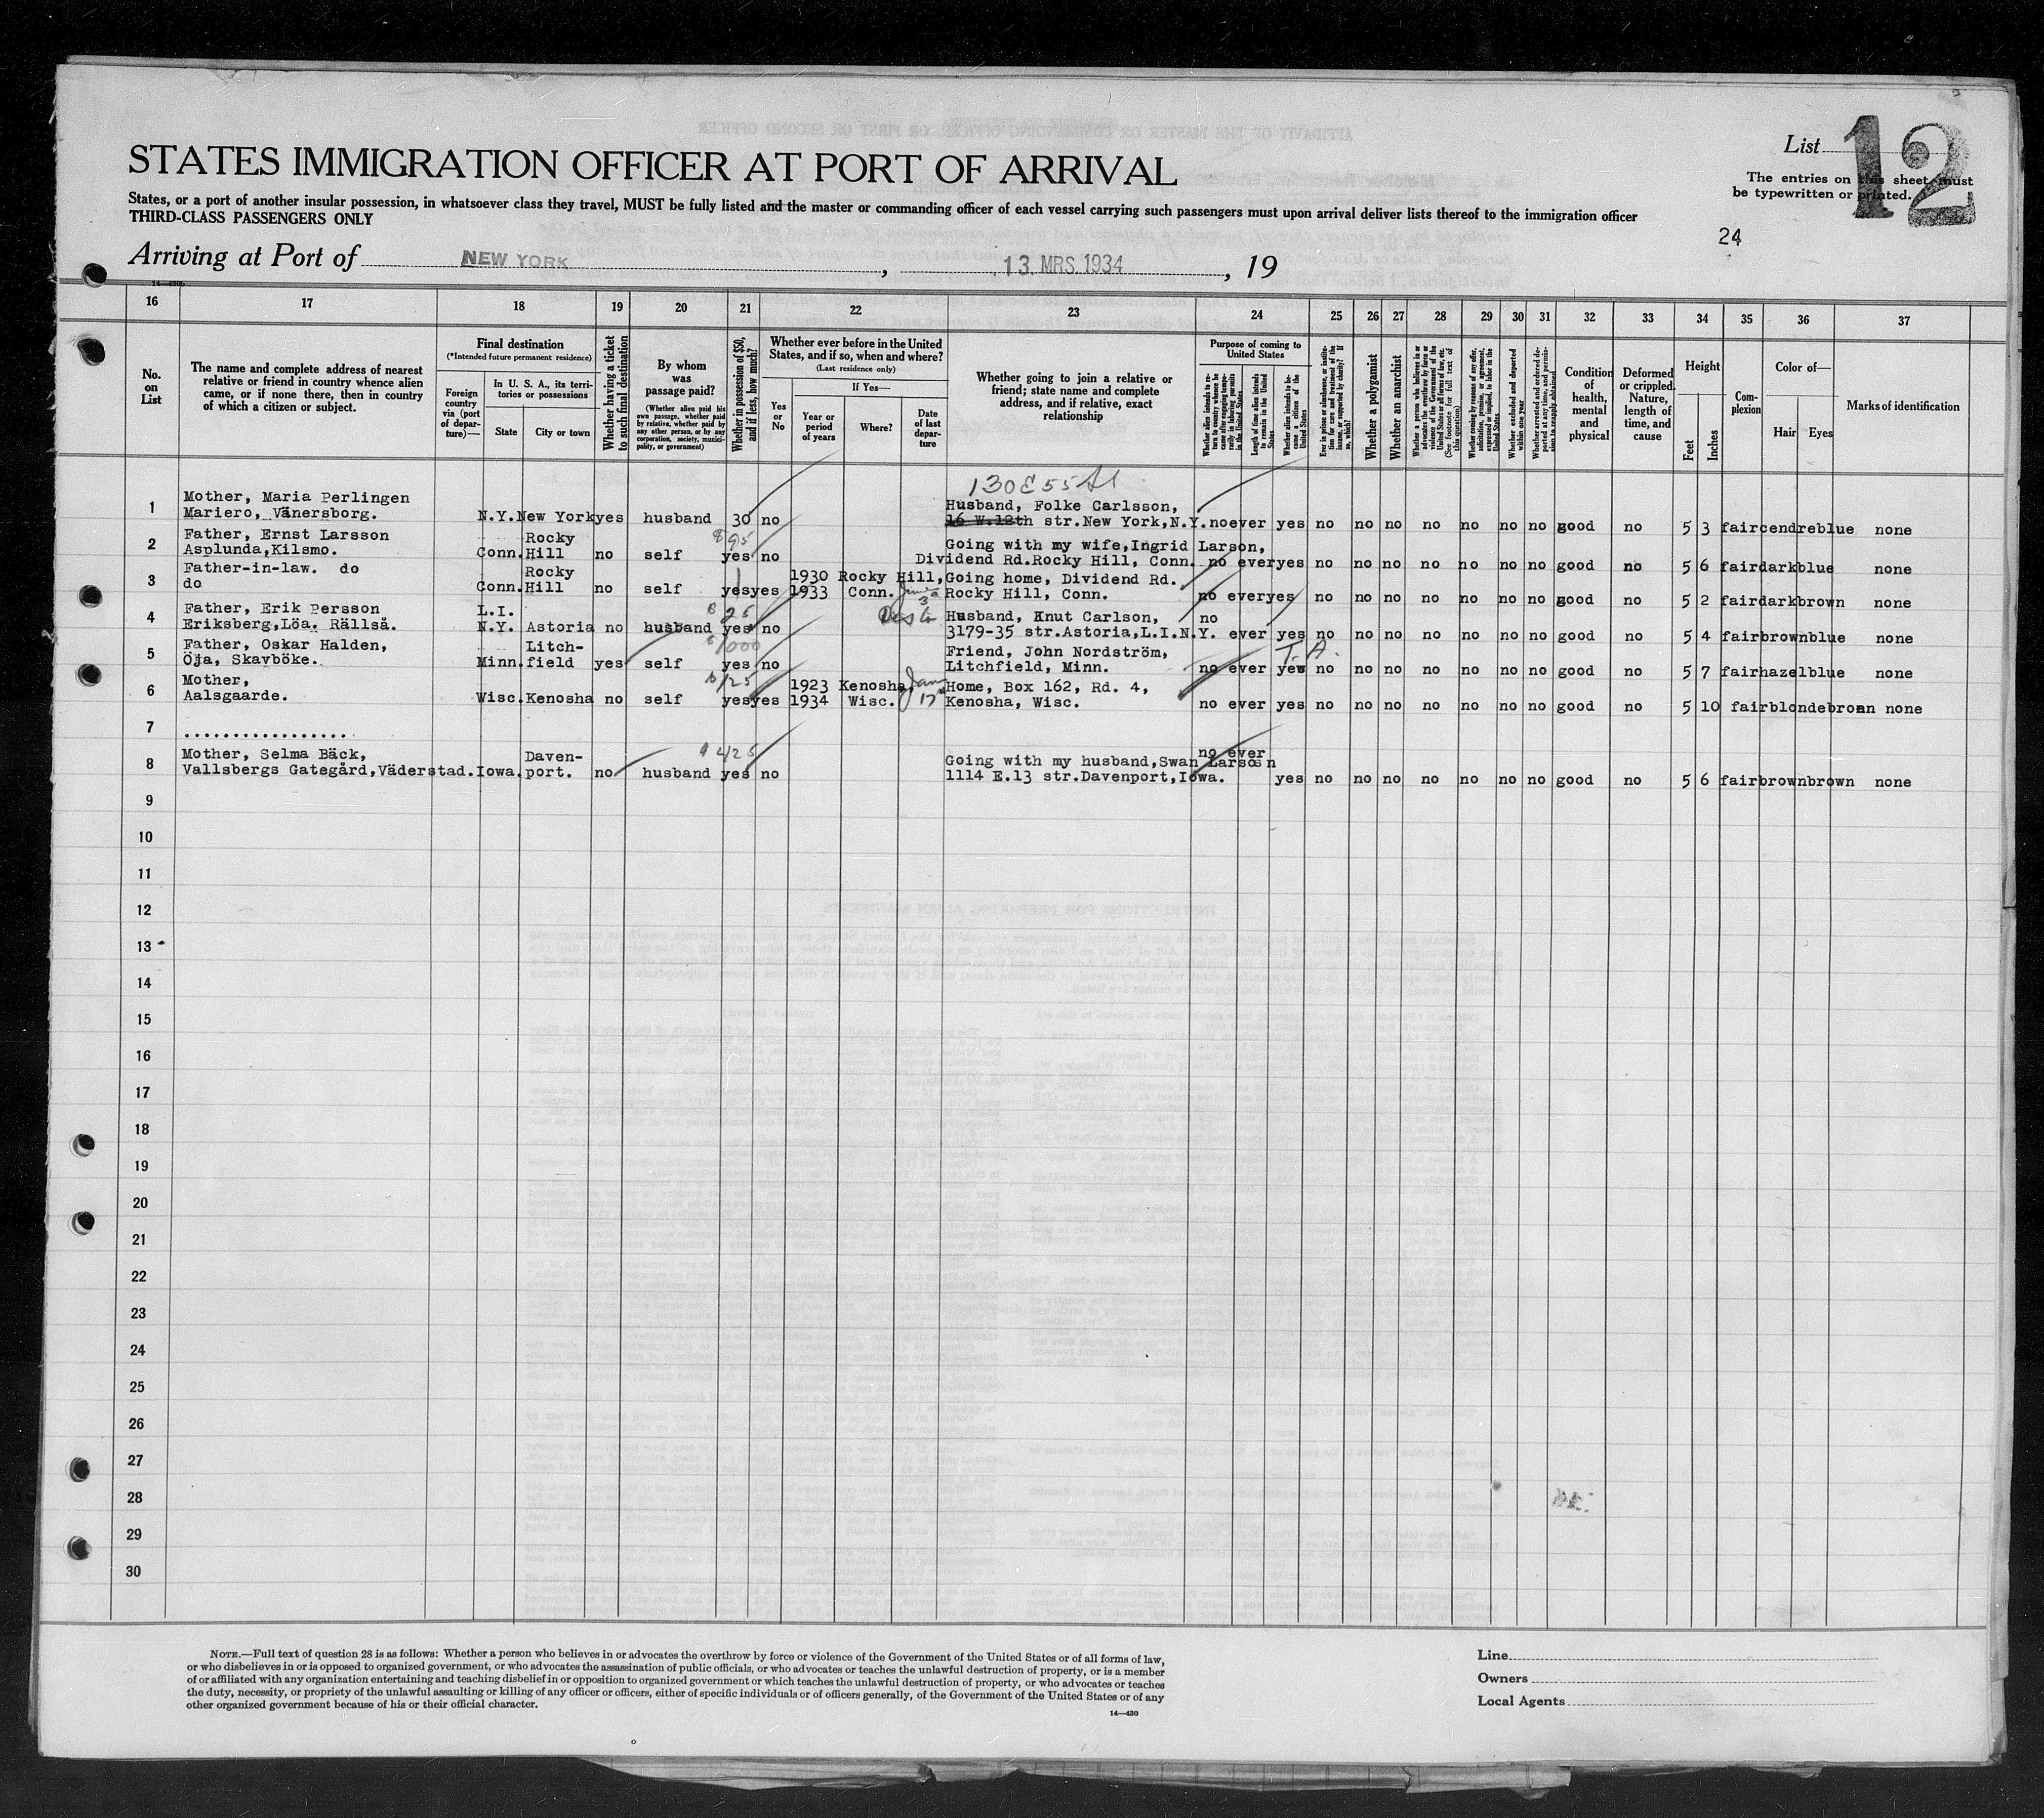 List
12
The entries on this sheet must
be typewritten or printed.
STATES IMMIGRATION OFFICER AT PORT OF ARRIVAL
States, or a port of another insular possession, in whatsoever class they travel, MUST be fully listed and the master or commanding officer of each vessel carrying such passengers must upon arrival deliver lists thereof to the immigration officer
THIRD-CLASS PASSENGERS ONLY
24
Arriving at Port of NEW YORK, 13 MRS 1934, 19
16 17 18 19 20 21 22 23 24 25 26 27 28 29 30 31 32 33 34 35 36 37
No. on List
The name and complete address of nearest relative or friend in country whence alien came, or if none there, then in country of which a citizen or subject.
Final destination
(*Intended future permanent residence)
Foreign country via (port of departure)—
In U. S. A., its territories or possessions
State
City or town
Whether having a ticket to such final destination
By whom was passage paid?
(Whether alien paid his own passage, whether paid by relative, whether paid by any other person, or by any corporation, society, municipality, or government)
Whether in possession of $50, and if less, how much?
Whether ever before in the United States, and if so, when and where?
(Last residence only)
Yes or No
If Yes—
Year or period of years
Where?
Date of last departure
Whether going to join a relative or friend; state name and complete address, and if relative, exact relationship
Purpose of coming to United States
Length of time alien intends to remain in the United States
Whether alien intends to become a citizen of the United States
Whether a polygamist
Whether an anarchist
Whether excluded and deported within one year
Condition of health, mental and physical
Deformed or crippled. Nature, length of time, and cause
Height
Feet
Inches
Complexion
Color of—
Hair
Eyes
Marks of identification
130 E 55 St
1 Mother, Maria Perlingen Husband, Folke Carlsson,
Mariero, Vänersborg. N.Y. New York yes husband 30 no 16 W.12th str. New York, N.Y. no ever yes no no no no no no no good no 5 3 fair cendre blue none
2 Father, Ernst Larsson Rocky $95 Going with my wife, Ingrid Larson,
Asplunda, Kilsmo. Conn. Hill no self yes no Dividend Rd. Rocky Hill, Conn. no ever yes no no no no no no no good no 5 6 fair dark blue none
3 Father-in-law. do Rocky 1930 Rocky Hill, Going home, Dividend Rd.
do Conn. Hill no self yes yes 1933 Conn. Rocky Hill, Conn. no ever yes no no no no no no no good no 5 2 fair dark brown none
4 Father, Erik Persson L.I. $25 Husband, Knut Carlson, no
Eriksberg, Löa. Rällså. N.Y. Astoria no husband yes no 3179-35 str. Astoria, L.I.N.Y. ever yes no no no no no no no good no 5 4 fair brown blue none
5 Father, Oskar Halden, Litch- $1000 Friend, John Nordström, T.A.
Öja, Skavböke. Minn. field yes self yes no Litchfield, Minn. no ever yes no no no no no no no good no 5 7 fair hazel blue none
6 Mother, $125 1923 Kenosha, Jan Home, Box 162, Rd. 4,
Aalsgaarde. Wisc. Kenosha no self yes yes 1934 Wisc. 17 Kenosha, Wisc. no ever yes no no no no no no no good no 5 10 fair blonde broen none
7 .................
8 Mother, Selma Bäck, Daven- $425 Going with my husband, Swan Larson no ever
Vallsbergs Gategård, Väderstad. Iowa. port. no husband yes no 1114 E.13 str. Davenport, Iowa. yes no no no no no no no good no 5 6 fair brown brown none
9
10
11
12
13
14
15
16
17
18
19
20
21
22
23
24
25
26
27
28
29
30
NOTE.—Full text of question 28 is as follows: Whether a person who believes in or advocates the overthrow by force or violence of the Government of the United States or of all forms of law,
or who disbelieves in or is opposed to organized government, or who advocates the assassination of public officials, or who advocates or teaches the unlawful destruction of property, or is a member
of or affiliated with any organization entertaining and teaching disbelief in or opposition to organized government or which teaches the unlawful destruction of property, or who advocates or teaches
the duty, necessity, or propriety of the unlawful assaulting or killing of any officer or officers, either of specific individuals or of officers generally, of the Government of the United States or of any
other organized government because of his or their official character.
14—430
Line
Owners
Local Agents